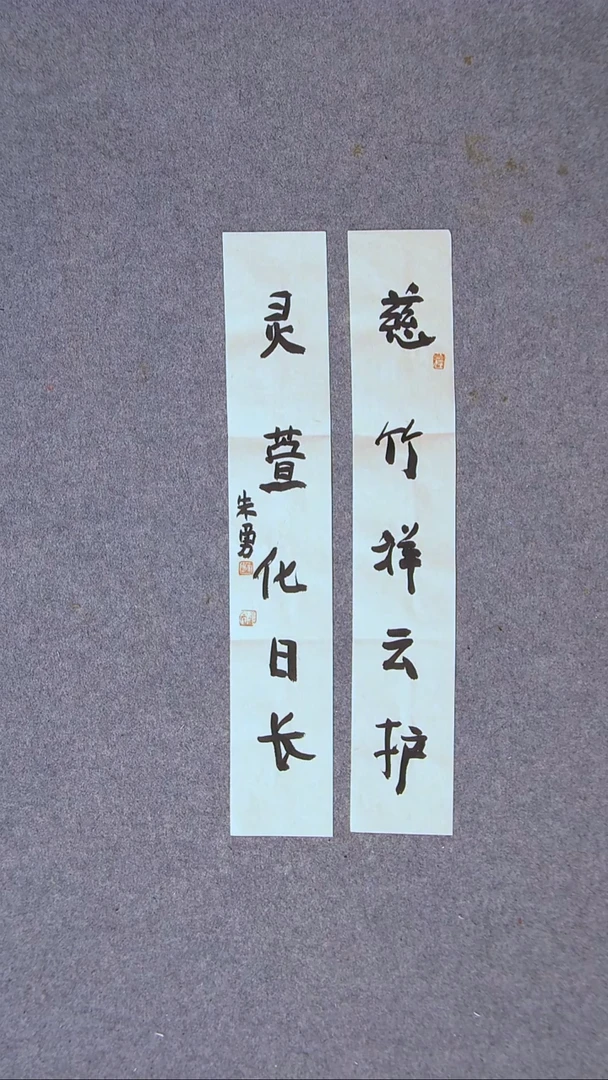 慈竹祥云护
灵萱化日长
朱勇